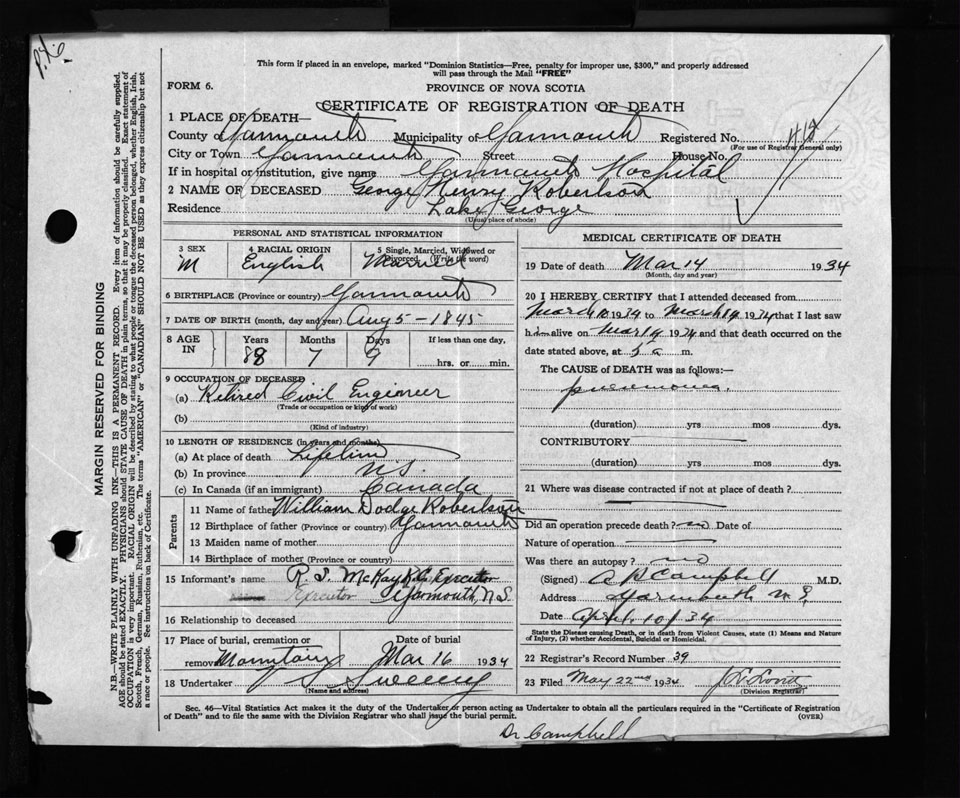 This form if placed in an envelope, marked "Dominion Statistics—Free, penalty for improper use, $300," and properly addressed
will pass through the Mail "FREE"
FORM 6.
PROVINCE OF NOVA SCOTIA
CERTIFICATE OF REGISTRATION OF DEATH
1 PLACE OF DEATH—
County of Yarmouth Municipality of Yarmouth Registered No.
(For use of Registrar General only)
City or Town Yarmouth Street House No.
If in hospital or institution, give name Yarmouth Hospital
2 NAME OF DECEASED George Henry Robertson
Residence Lake George
(Usual place of abode)
MARGIN RESERVED FOR BINDING
N.B.—WRITE PLAINLY WITH UNFADING INK—THIS IS A PERMANENT RECORD. Every item of information should be carefully supplied.
AGE should be stated EXACTLY. PHYSICIANS should STATE CAUSE OF DEATH in plain terms, so that it may be properly classified. Exact statement of
OCCUPATION is very important. RACIAL ORIGIN will be described by stating to what people or tongue the deceased person belonged, whether English, Irish,
Scotch, French, German, Russian, Ruthenian, etc. The terms "AMERICAN" or "CANADIAN" SHOULD NOT BE USED as they express citizenship but not
a race or people. See instructions on back of Certificate.
PERSONAL AND STATISTICAL INFORMATION
3 SEX 4 RACIAL ORIGIN 5 Single, Married, Widowed or
Divorced. (Write the word)
M English Married
6 BIRTHPLACE (Province or country) Yarmouth
7 DATE OF BIRTH (month, day and year) Aug 5 - 1845
8 AGE IN Years Months Days If less than one day,
88 7 9 hrs. or min.
9 OCCUPATION OF DECEASED
(a) Retired Civil Engineer
(Trade or occupation or kind of work)
(b)
(Kind of industry)
10 LENGTH OF RESIDENCE (in years and months)
(a) At place of death Lifetime
(b) In province N.S.
(c) In Canada (if an immigrant) Canada
Parents
11 Name of father William Dodge Robertson
12 Birthplace of father (Province or country) Yarmouth
13 Maiden name of mother
14 Birthplace of mother (Province or country)
15 Informant's name R. S. McKay K.C. Executor
Executor Yarmouth, N.S.
16 Relationship to deceased
17 Place of burial, cremation or Date of burial
removal Mar 16 1934
18 Undertaker Sweeny
(Name and address)
MEDICAL CERTIFICATE OF DEATH
19 Date of death Mar 14 1934
(Month, day and year)
20 I HEREBY CERTIFY that I attended deceased from
March 1934 to March 14 1934 that I last saw
him alive on Mar 14 1934 and that death occurred on
the date stated above, at 5 a m.
The CAUSE of DEATH was as follows:—
pneumonia.
(duration) yrs mos dys.
CONTRIBUTORY
(duration) yrs mos dys.
21 Where was disease contracted if not at place of death?
Did an operation precede death? no Date of
Nature of operation
Was there an autopsy? no
(Signed) Campbell M.D.
Address Yarmouth N.S.
Date April 10/34
State the Disease causing Death, or in death from Violent Causes, state (1) Means and Nature
of Injury, (2) whether Accidental, Suicidal or Homicidal.
22 Registrar's Record Number 39
23 Filed May 22nd 1934
(Division Registrar)
Sec. 46—Vital Statistics Act makes it the duty of the Undertaker or person acting as Undertaker to obtain all the particulars required in the "Certificate of Registration
of Death" and to file the same with the Division Registrar who shall issue the burial permit. (OVER)
Dr Campbell